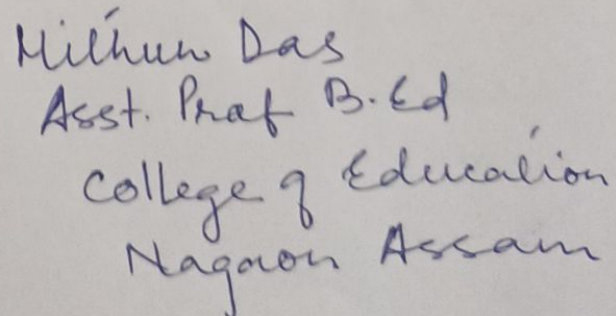 Mithun Das
Asst. Prof B.Ed
College of Education
Nagaon Assam